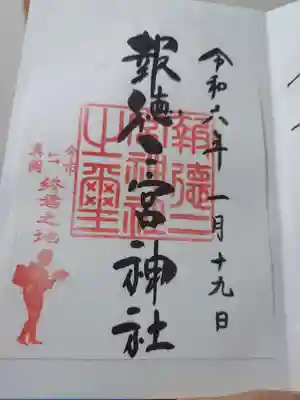 令和六年一月十九日
報徳二宮神社
報徳二
宮神社
之璽
今市
終焉之地